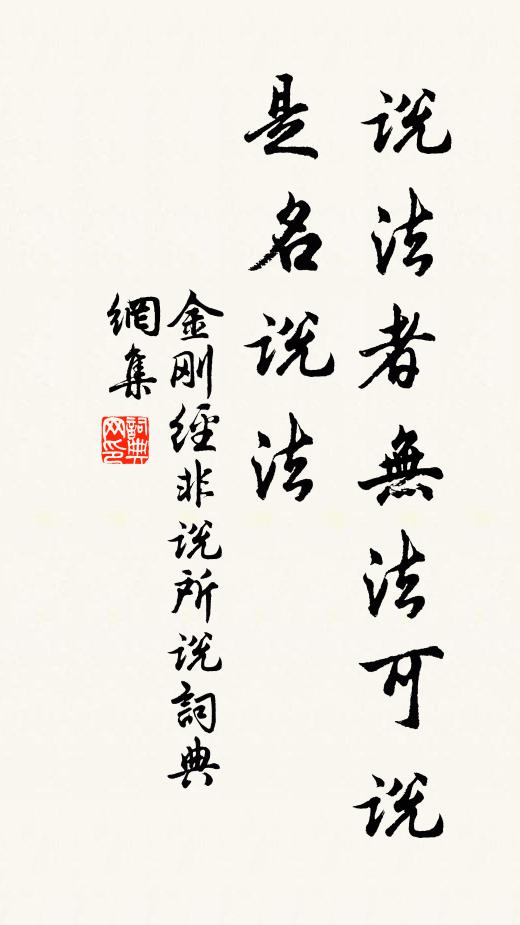 说法者無法可说
是名说法
金刚經非说所说詞典
網集
詞典
网印